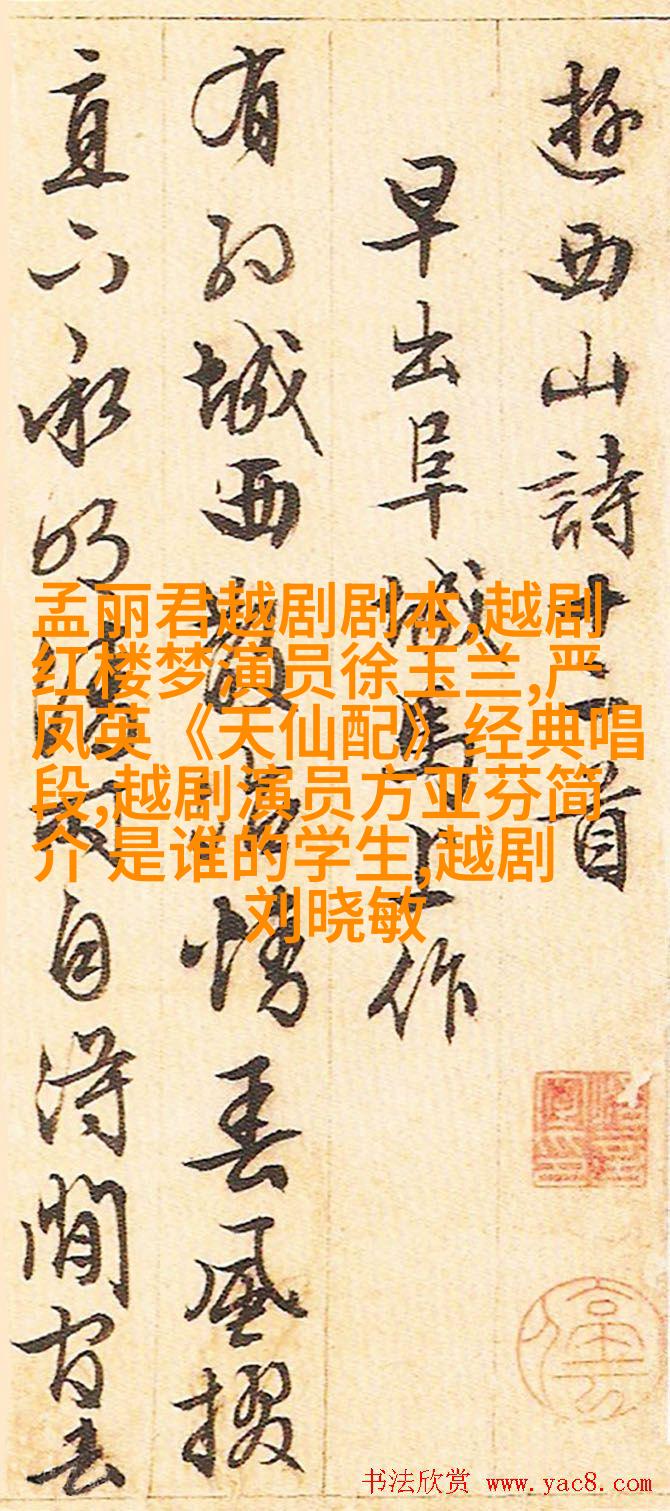 遊西山詩十二首
早出阜城馬上作
有約城西散情春風掇
自得閒官去
孟丽君越剧剧本,越剧
红楼梦演员徐玉兰,严
凤英《天仙配》经典唱
段,越剧演员方亚芬简
介 是谁的学生,越剧
刘晓敏
书法欣赏 www.yac8.com